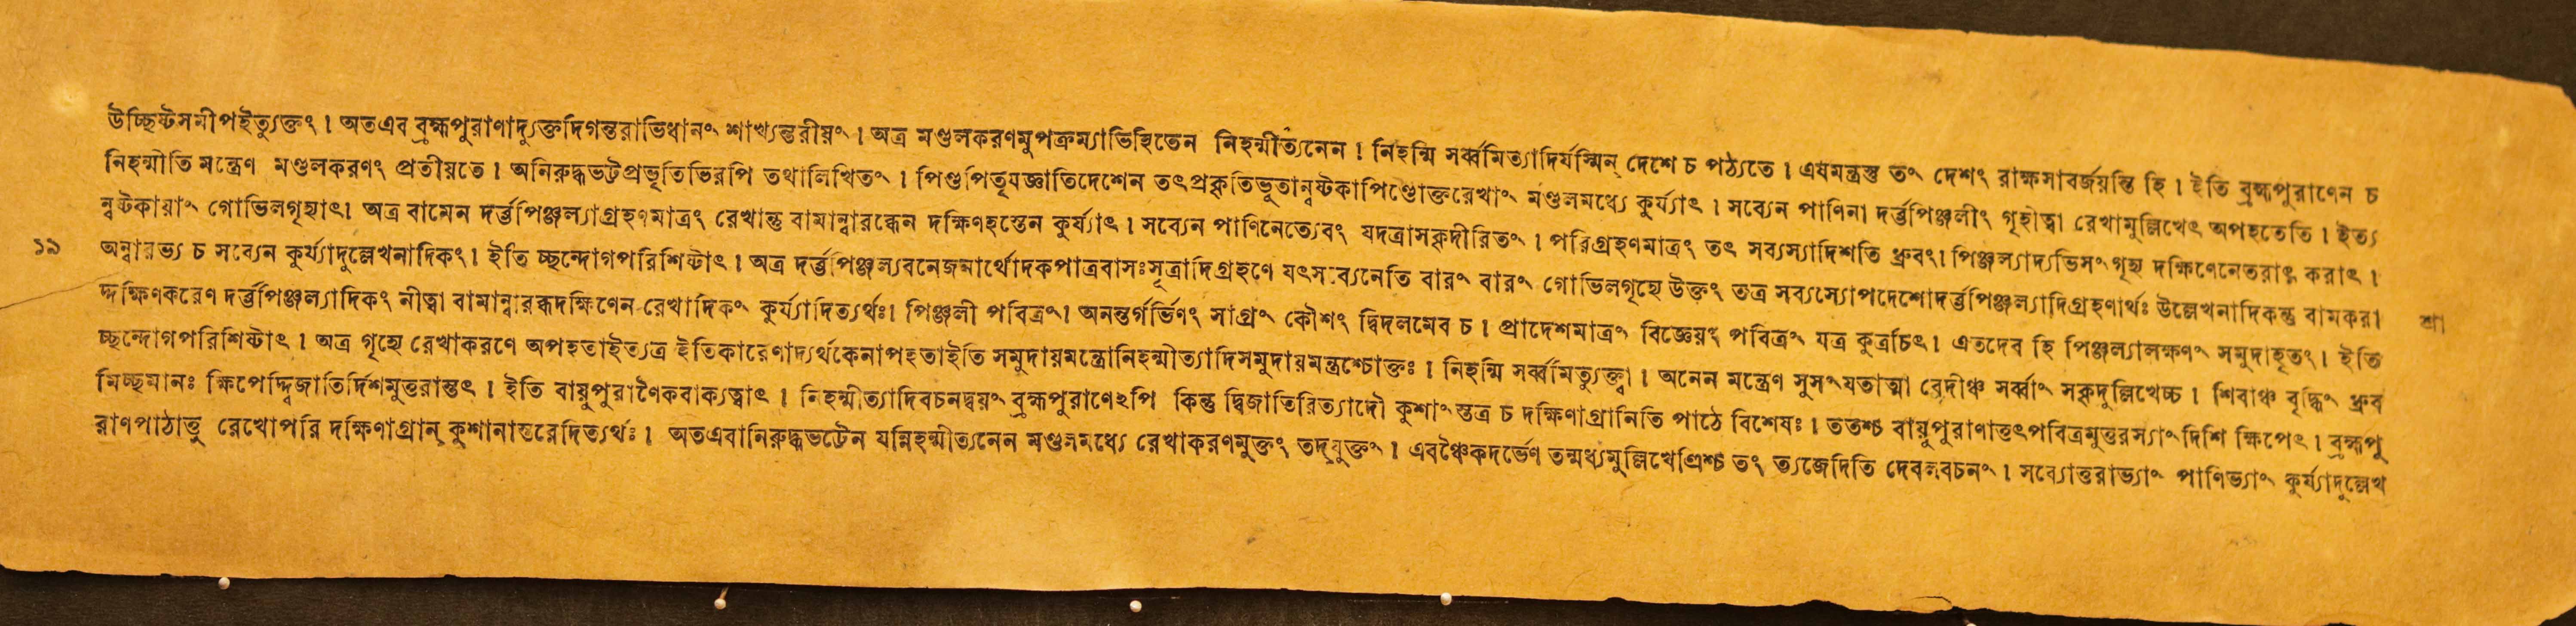 উচ্ছিষ্টসমীপইত্যুক্তং। অতএব ব্রহ্মপুরাণাদ্যুক্তদিগন্তরাভিধানং শাখ্যন্তরীয়ং। অত্র মণ্ডলকরণমুপক্রম্যাভিহিতেন নিহন্মীত্যনেন। নিহন্মি সর্ব্বমিত্যাদির্যস্মিন্ দেশে চ পঠ্যতে। এষমন্ত্রস্তু তং দেশং রাক্ষসাবর্জয়ন্তি হি। ইতি ব্রহ্মপুরাণেন চ
নিহন্মীতি মন্ত্রেণ মণ্ডলকরণং প্রতীয়তে। অনিরুদ্ধভট্টপ্রভৃতিভিরপি তথালিখিতং। পিণ্ডপিতৃযজ্ঞাতিদেশেন তৎপ্রকৃতিভূতান্বষ্টকাপিণ্ডোক্তরেখাং মণ্ডলমধ্যে কুর্য্যাৎ। সব্যেন পাণিনা দর্ভপিঞ্জলীং গৃহীত্বা রেখামুল্লিখেৎ অপহতেতি। ইত্য
ন্বষ্টকায়াং গোভিলগৃহ্যাৎ। অত্র বামেন দর্ভপিঞ্জল্যাগ্রহণমাত্রং রেখান্তু বামান্বারব্ধেন দক্ষিণহস্তেন কুর্য্যাৎ। সব্যেন পাণিনেত্যেবং যদত্রাসকৃদীরিতং। পরিগ্রহণমাত্রং তৎ সব্যস্যাদিশতি ধ্রুবং। পিঞ্জল্যাদ্যভিসংগৃহ্য দক্ষিণেনেতরাৎ করাৎ।
১৯ অন্বারভ্য চ সব্যেন কুর্য্যাদুল্লেখনাদিকং। ইতি চ্ছন্দোগপরিশিষ্টাৎ। অত্র দর্ভপিঞ্জল্যবনেজনার্থোদকপাত্রবাসঃসূত্রাদিগ্রহণে যৎসব্যেনেতি বারং বারং গোভিলগৃহ্যে উক্তং তত্র সব্যস্যোপদেশোদর্ভপিঞ্জল্যাদিগ্রহণার্থঃ উল্লেখনাদিকন্তু বামকরা শ্রা
দ্দক্ষিণকরেণ দর্ভপিঞ্জল্যাদিকং নীত্বা বামান্বারব্ধদক্ষিণেন রেখাদিকং কুর্য্যাদিত্যর্থঃ। পিঞ্জলী পবিত্রং। অনন্তর্গর্ভিণং সাগ্রং কৌশং দ্বিদলমেব চ। প্রাদেশমাত্রং বিজ্ঞেয়ং পবিত্রং যত্র কুত্রচিৎ। এতদেব হি পিঞ্জল্যালক্ষণং সমুদাহৃতং। ইতি
চ্ছন্দোগপরিশিষ্টাৎ। অত্র গৃহ্যে রেখাকরণে অপহতাইত্যত্র ইতিকারেণাদ্যর্থকেনাপহতাইতি সমুদায়মন্ত্রোনিহন্মীত্যাদিসমুদায়মন্ত্রশ্চোক্তঃ। নিহন্মি সর্ব্বমিত্যুক্ত্বা। অনেন মন্ত্রেণ সুসংযতাত্মা বেদীঞ্চ সর্ব্বাং সকৃদুল্লিখেচ্চ। শিবাঞ্চ বৃদ্ধিং ধ্রুব
মিচ্ছমানঃ ক্ষিপেদ্দ্বিজাতির্দিশমুত্তরান্তৎ। ইতি বায়ুপুরাণৈকবাক্যত্বাৎ। নিহন্মীত্যাদিবচনদ্বয়ং ব্রহ্মপুরাণেঽপি কিন্তু দ্বিজাতিরিত্যাদৌ কুশাংস্তত্র চ দক্ষিণাগ্রানিতি পাঠে বিশেষঃ। ততশ্চ বায়ুপুরাণাত্তৎপবিত্রমুত্তরস্যাং দিশি ক্ষিপেৎ। ব্রহ্মপু
রাণপাঠাত্তু রেখোপরি দক্ষিণাগ্রান্ কুশানাস্তরেদিত্যর্থঃ। অতএবানিরুদ্ধভট্টেন যন্নিহন্মীত্যনেন মণ্ডলমধ্যে রেখাকরণমুক্তং তদ্যুক্তং। এবঞ্চৈকদর্ভেণ তন্মধ্যমুল্লিখেৎত্রিশ্চ তং ত্যজেদিতি দেবলবচনং। সব্যোত্তরাভ্যাং পাণিভ্যাং কুর্য্যাদুল্লেখ